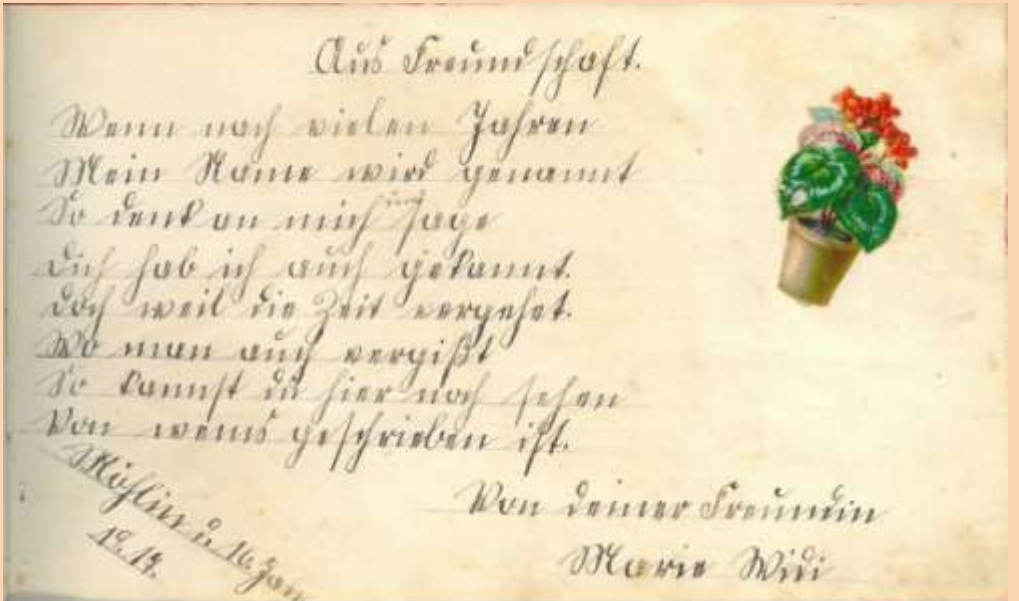 Aus Freundschaft.
Wenn nach vielen Jahren
Mein Name wird genannt
So denk an mich und sage
Dich hab ich auch gekannt.
Doch weil die Zeit vergehet.
Wo man auch vergißt
So kannst du hier noch sehen
Von wems geschrieben ist.
Von deiner Freundin
Marie Widi
Möhlin d. 16. Jan
19.14.